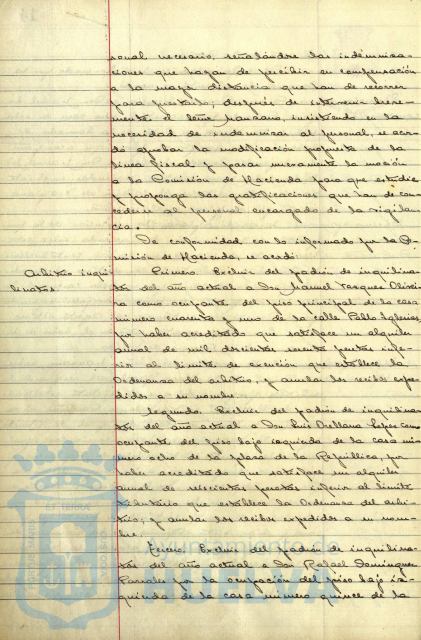 sonal necesario, señalándose las indemniza-
ciones que hayan de percibir en compensación
a la mayor distancia que han de recorrer
para prestarlo; después de intervenir breve-
mente el señor Manzano, insistiendo en la
necesidad de indemnizar al personal, se acor-
dó aprobar la modificación propuesta de la
línea fiscal y pasar nuevamente la moción
a la Comisión de Hacienda para que estudie
y proponga las gratificaciones que han de con-
cederse al personal encargado de la vigilan-
cia.
De conformidad con lo informado por la Co-
misión de Hacienda, se acordó:
Arbitrio inqui-
linatos.
Primero. Excluir del padrón de inquilina-
tos del año actual a Don Manuel Vazquez Oliveira
como ocupante del piso principal de la casa
número cuarenta y uno de la calle Pablo Iglesias,
por haber acreditado que satisface un alquiler
anual de mil doscientas pesetas infe-
rior al límite de exención que establece la
Ordenanza del arbitrio, y anular los recibos expe-
didos a su nombre.
Segundo. Excluir del padrón de inquilina-
tos del año actual a Don Luis Orellana Lopez como
ocupante del piso bajo izquierda de la casa nú-
mero ocho de la plaza de la República, por
haber acreditado que satisface un alquiler
anual de seiscientas pesetas inferior al límite
tributario que establece la Ordenanza del arbi-
trio, y anular los recibos expedidos a su nom-
bre.
Tercero. Excluir del padrón de inquilina-
tos del año actual a Don Rafael Dominguez
Parrales por la ocupación del piso bajo iz-
quierda de la casa número quince de la
Ayuntamiento de